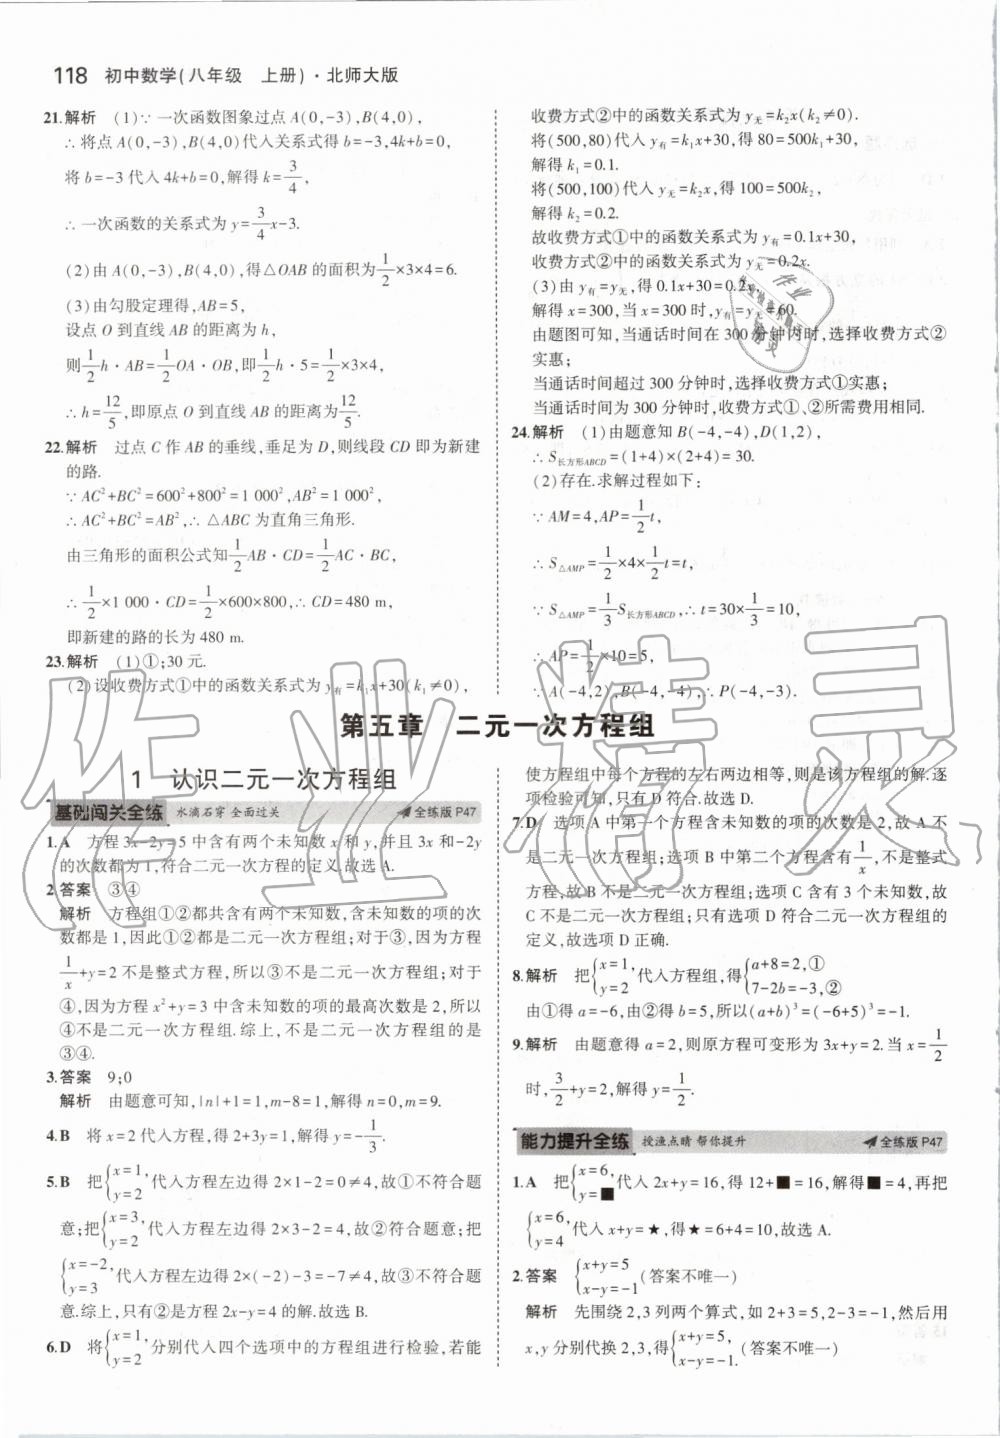 118 初中数学(八年级 上册)·北师大版
21.解析 (1)∵一次函数图象过点A(0,-3),B(4,0),
∴将点A(0,-3),B(4,0)代入关系式得b=-3,4k+b=0,
将b=-3代入4k+b=0,解得k=3/4,
∴一次函数的关系式为y=3/4x-3.
(2)由A(0,-3),B(4,0),得△OAB的面积为1/2×3×4=6.
(3)由勾股定理得,AB=5,
设点O到直线AB的距离为h,
则1/2h·AB=1/2OA·OB,即1/2h·5=1/2×3×4,
∴h=12/5,即原点O到直线AB的距离为12/5.
22.解析 过点C作AB的垂线,垂足为D,则线段CD即为新建
的路.
∵AC²+BC²=600²+800²=1 000²,AB²=1 000²,
∴AC²+BC²=AB²,∴△ABC为直角三角形.
由三角形的面积公式知1/2AB·CD=1/2AC·BC,
∴1/2×1 000·CD=1/2×600×800,∴CD=480 m.
即新建的路的长为480 m.
23.解析 (1)①;30元.
(2)设收费方式①中的函数关系式为y有=k₁x+30(k₁≠0),
收费方式②中的函数关系式为y无=k₂x(k₂≠0).
将(500,80)代入y有=k₁x+30,得80=500k₁+30,
解得k₁=0.1.
将(500,100)代入y无=k₂x,得100=500k₂,
解得k₂=0.2.
故收费方式①中的函数关系式为y有=0.1x+30,
收费方式②中的函数关系式为y无=0.2x.
(3)由y有=y无,得0.1x+30=0.2x,
解得x=300,当x=300时,y有=y无=60.
由题图可知,当通话时间在300分钟内时,选择收费方式②
实惠;
当通话时间超过300分钟时,选择收费方式①实惠;
当通话时间为300分钟时,收费方式①、②所需费用相同.
24.解析 (1)由题意知B(-4,-4),D(1,2),
∴S长方形ABCD=(1+4)×(2+4)=30.
(2)存在.求解过程如下:
∵AM=4,AP=1/2t,
∴S△AMP=1/2×4×1/2t=t,
∵S△AMP=1/3S长方形ABCD,∴t=30×1/3=10,
∴AP=1/2×10=5,
∵A(-4,2),B(-4,-4),∴P(-4,-3).
第五章 二元一次方程组
1 认识二元一次方程组
基础闯关全练 水滴石穿 全面过关 全练版P47
1.A 方程3x-2y=5中含有两个未知数x和y,并且3x和-2y
的次数都为1,符合二元一次方程的定义.故选A.
2.答案 ③④
解析 方程组①②都共含有两个未知数,含未知数的项的次
数都是1,因此①②都是二元一次方程组;对于③,因为方程
1/x+y=2不是整式方程,所以③不是二元一次方程组;对于
④,因为方程x²+y=3中含未知数的项的最高次数是2,所以
④不是二元一次方程组.综上,不是二元一次方程组的是
③④.
3.答案 9;0
解析 由题意可知,|n|+1=1,m-8=1,解得n=0,m=9.
4.B 将x=2代入方程,得2+3y=1,解得y=-1/3.
5.B 把{x=1,y=2代入方程左边得2×1-2=0≠4,故①不符合题
意;把{x=3,y=2代入方程左边得2×3-2=4,故②符合题意;把
{x=-2,y=3代入方程左边得2×(-2)-3=-7≠4,故③不符合题
意.综上,只有②是方程2x-y=4的解.故选B.
6.D 将{x=1,y=2分别代入四个选项中的方程组进行检验,若能
使方程组中每个方程的左右两边相等,则是该方程组的解.逐
项检验可知,只有D选项符合.故选D.
7.D 选项A中第一个方程含未知数的项的次数是2,故A不
是二元一次方程组;选项B中第二个方程含有1/x,不是整式
方程,故B不是二元一次方程组;选项C含有3个未知数,故
C不是二元一次方程组;只有选项D符合二元一次方程组的
定义,故选项D正确.
8.解析 把{x=1,y=2代入方程组,得{a+8=2,①7-2b=-3,②
由①得a=-6,由②得b=5,所以(a+b)³=(-6+5)³=-1.
9.解析 由题意得a=2,则原方程可变形为3x+y=2.当x=1/2
时,3/2+y=2,解得y=1/2.
能力提升全练 授渔点睛 帮你提升 全练版P47
1.A 把{x=6,y=■代入2x+y=16,得12+■=16,解得■=4,再把
{x=6,y=4代入x+y=★,得★=6+4=10,故选A.
2.答案 {x+y=5x-y=-1(答案不唯一)
解析 先围绕2,3列两个算式,如2+3=5,2-3=-1,然后用
x,y分别代换2,3,得{x+y=5,x-y=-1.(答案不唯一)
作业精灵